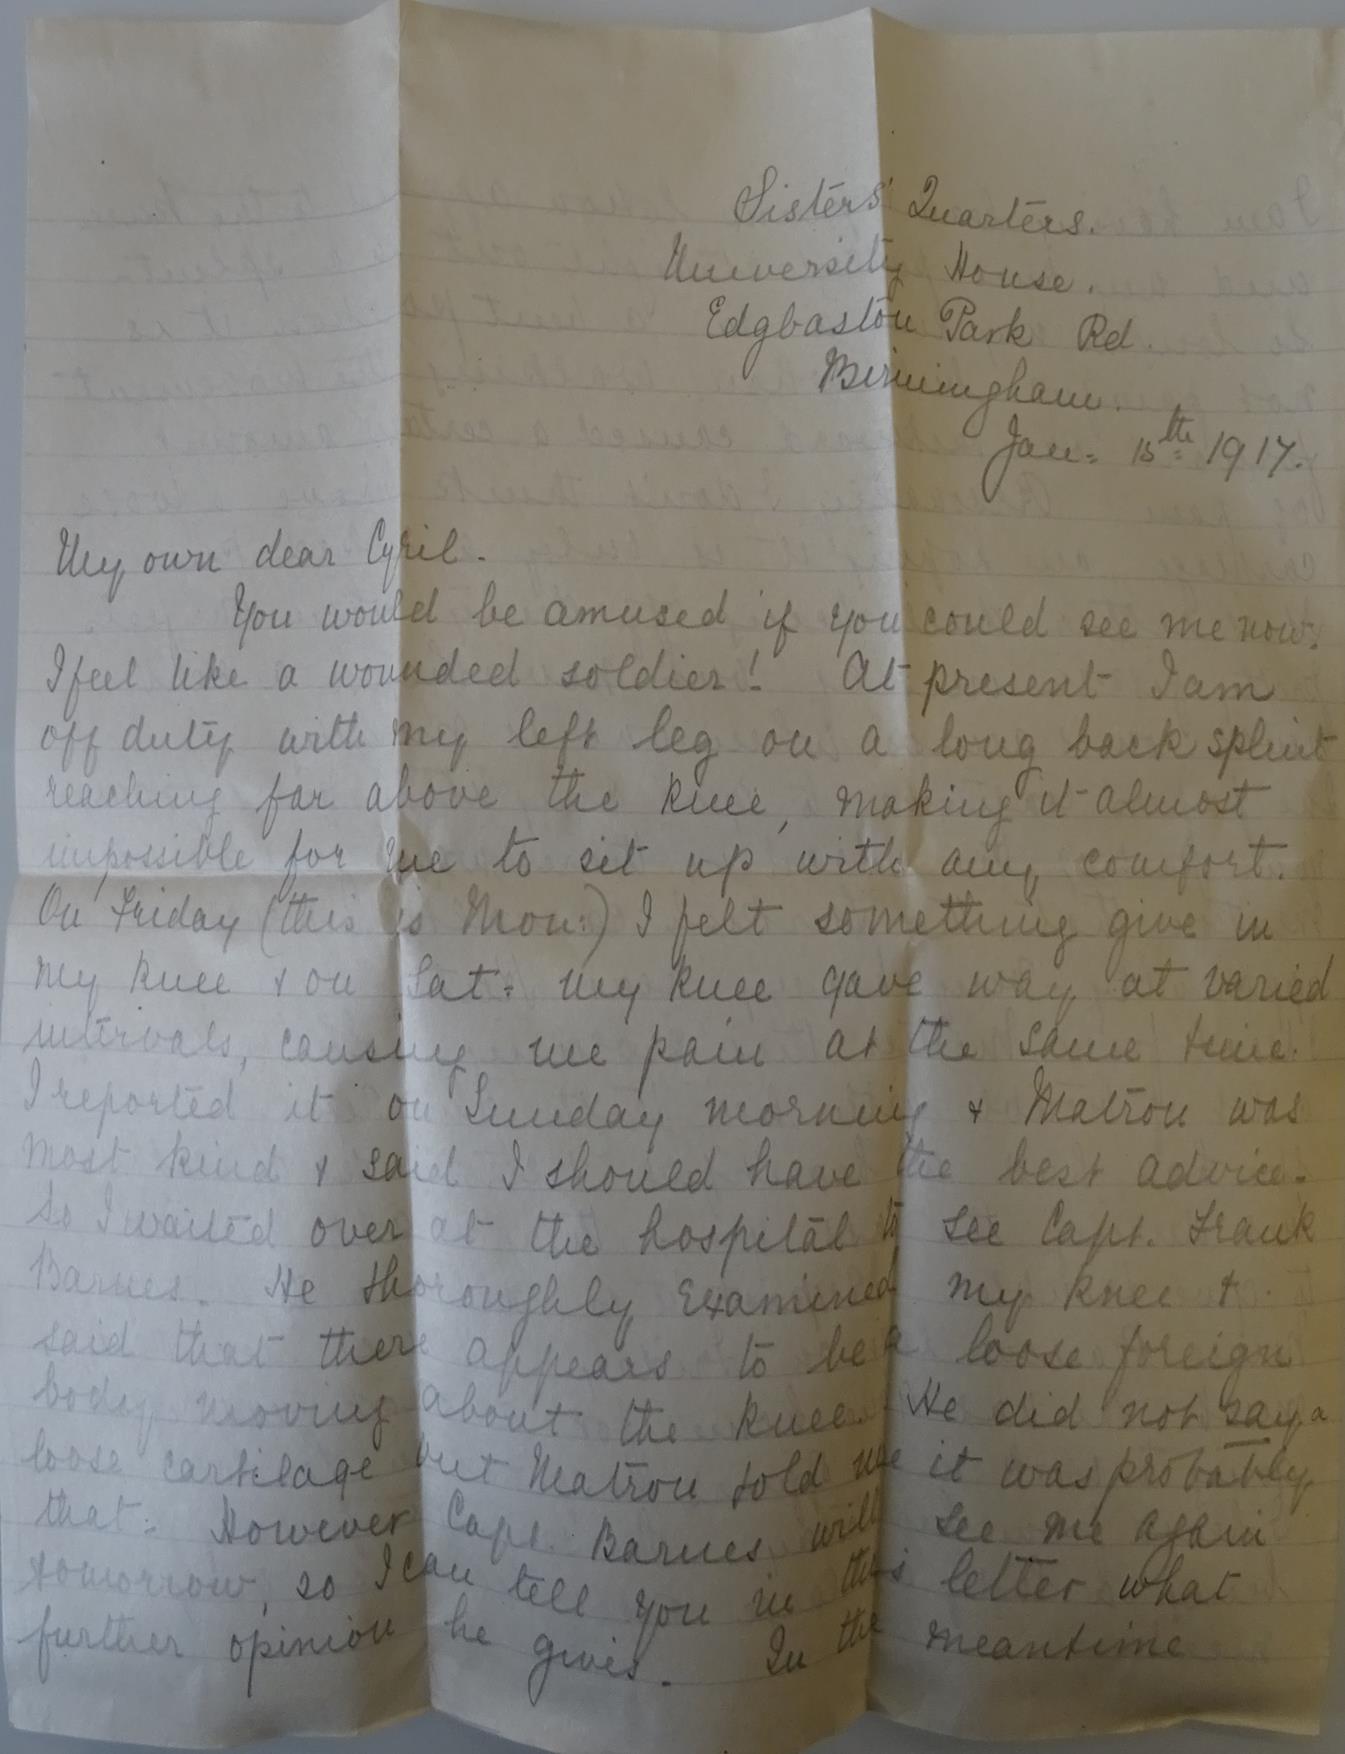 Sisters' Quarters.
University House.
Edgbaston Park Rd.
Birmingham.
Jan: 15th 1917.
My own dear Cyril.
You would be amused if you could see me now.
I feel like a wounded soldier! At present I am
off duty with my left leg on a long back splint
reaching far above the knee, making it almost
impossible for me to sit up with any comfort.
On Friday (this is Mon:) I felt something give in
my knee & on Sat: my knee gave way at varied
intervals, causing me pain at the same time.
I reported it on Sunday morning & Matron was
most kind & said I should have the best advice.
So I waited over at the hospital to see Capt. Frank
Barnes. He thoroughly examined my knee &
said that there appears to be a loose foreign
body moving about the knee. He did not say a
loose cartilage but Matron told me it was probably
that. However Capt. Barnes will see me again
tomorrow, so I can tell you in this letter what
further opinion he gives. In the meantime